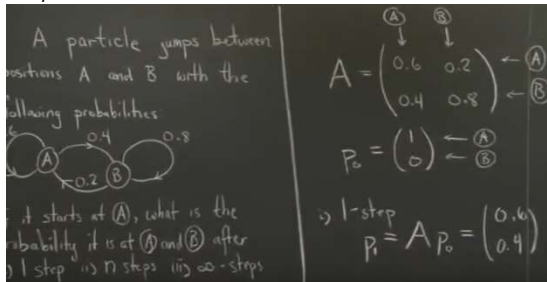 A particle jumps between
positions A and B with the
following probabilities:
6
0.4
0.8
A
B
0.2
it starts at A, what is the
probability it is at A and B after
) 1 step ii) n steps iii) ∞-steps
A B
↓ ↓
A = ( 0.6 0.2 ) ← A
( 0.4 0.8 ) ← B
p₀ = ( 1 ) ← A
( 0 ) ← B
i) 1-step
p₁ = A p₀ = ( 0.6 )
( 0.4 )